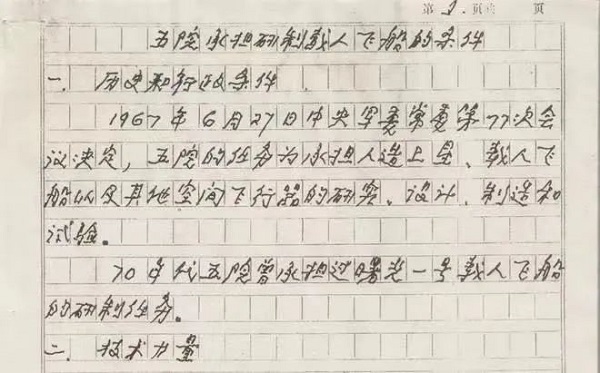 第 1 页 页
五院承担研制载人飞船的条件
一. 历史和行政条件
1967年6月27日中央军委常委第77次会
议决定，五院的任务为承担人造卫星、载人飞
船以及其他空间飞行器的研究、设计、制造和
试验。
70年代五院曾承担过曙光一号载人飞船
的研制任务。
二. 技术力量